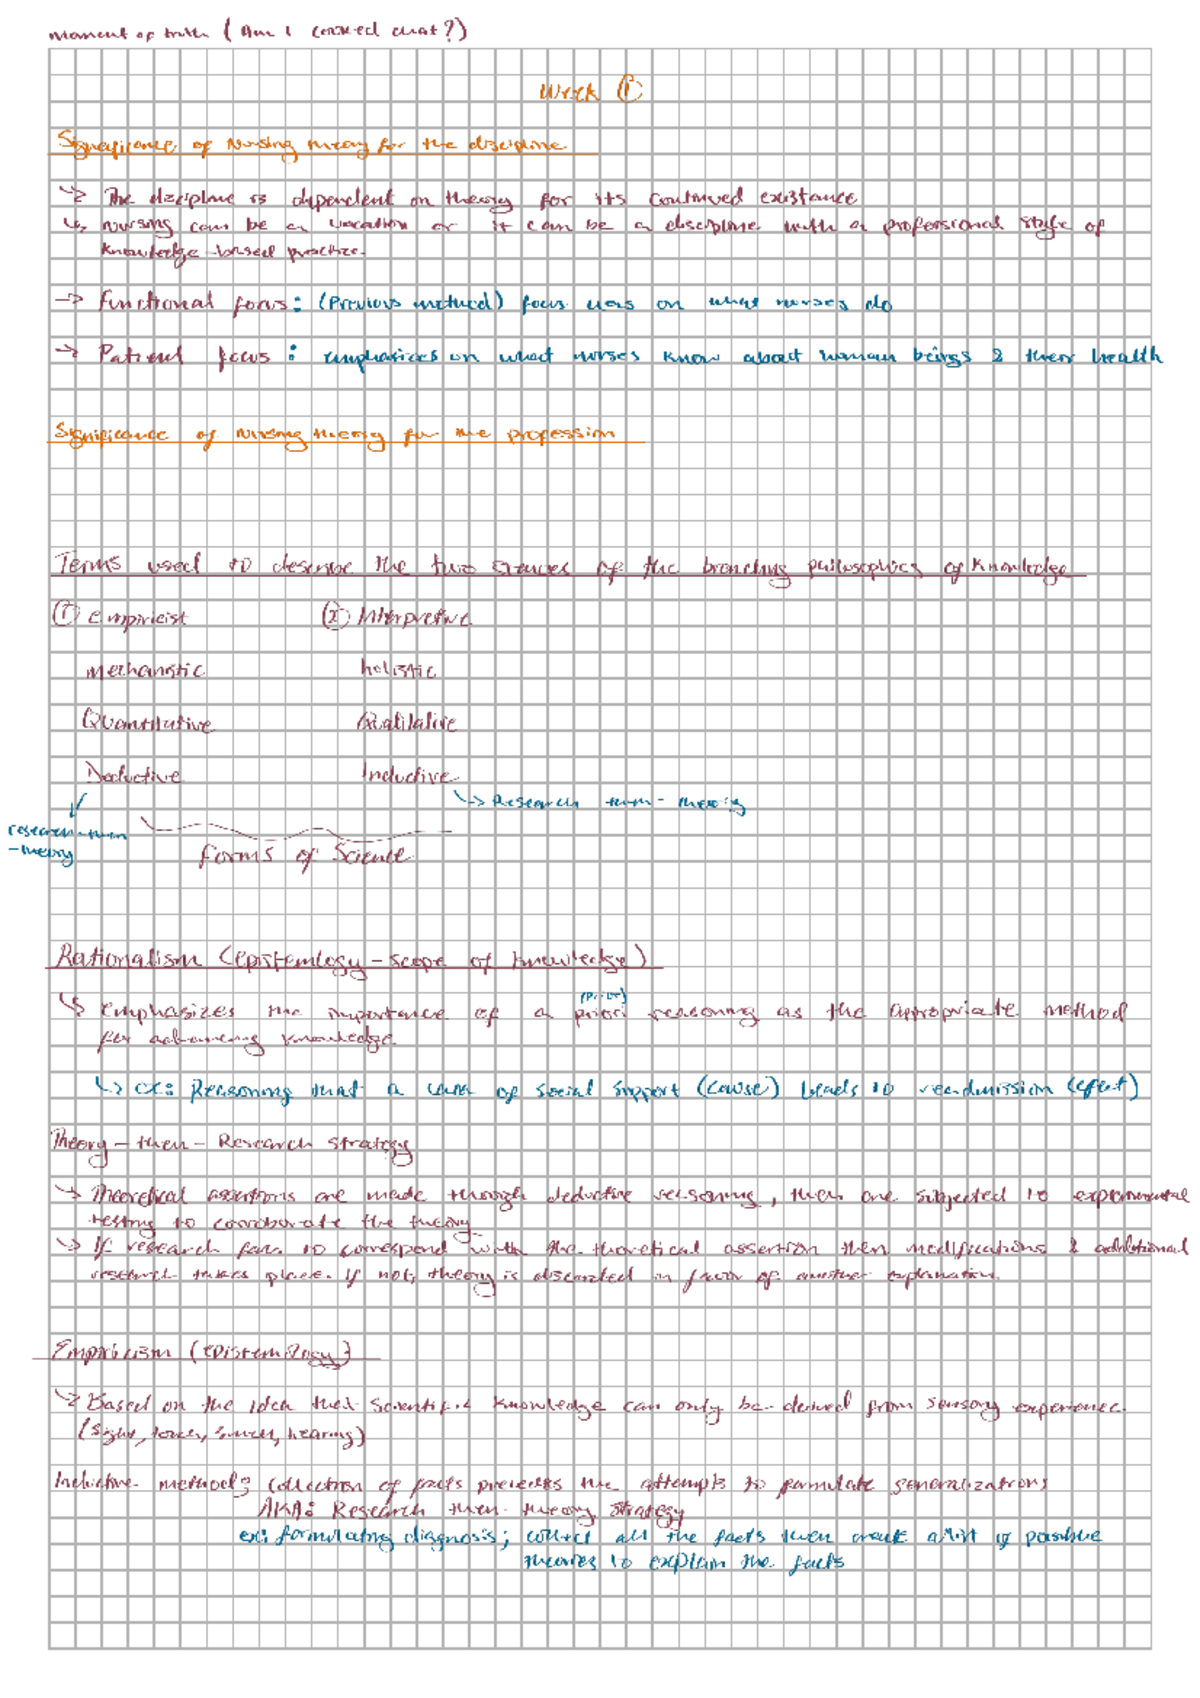 Moment of truth (Am I cooked chat?)
Week ①
Significance of Nursing theory for the discipline
↳ The discipline is dependent on theory for its continued existance
↳ nursing can be a vocation or it can be a discipline with a professional style of
knowledge-based practice.
→ Functional focus: (Previous method) focus was on what nurses do
→ Patient focus: emphasizes on what nurses know about human beings & their health
Significance of Nursing theory for the profession
Terms used to describe the two stances of the branching philosophies of knowledge
① Empiricist ② Interpretive
mechanistic holistic
Quantitative Qualitative
Deductive Inductive
↳ Research then - theory
research - then
- theory
forms of Science
Rationalism (epistemlogy - scope of knowledge)
(prior)
↳ Emphasizes the importance of a priori reasoning as the appropriate method
for advancing knowledge
↳ ex: Reasoning that a lack of social support (cause) leads to readmission (effect)
Theory - then - Research strategy
→ Theoretical assertions are made through deductive reasoning, then are subjected to experimental
testing to corroborate the theory
→ If research fails to correspond with the theoretical assertion then modifications & additional
research takes place. If not, theory is discarded in favor of another explanation.
Empiricism (epistemology)
↳ Based on the idea that scientific knowledge can only be derived from sensory experience
(sight, touch, smell, hearing)
Inductive method: collection of facts precedes the attempts to formulate generalizations
AKA: Research then theory strategy
ex: formulating diagnosis; collect all the facts then create a list of possible
theories to explain the facts